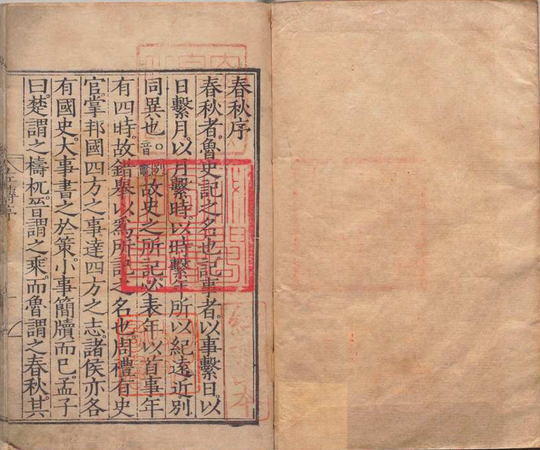 春秋序
春秋者。魯史記之名也。記事者。以事繫日。以
日繫月。以月繫時。以時繫年。所以紀遠近。別
同異也。故史之所記。必表年以首事。年
有四時。故錯舉以為所記之名也。周禮有史
官。掌邦國四方之事。達四方之志。諸侯亦各
有國史。大事書之於策。小事簡牘而已。孟子
曰。楚謂之檮杌。晉謂之乘。而魯謂之春秋。其